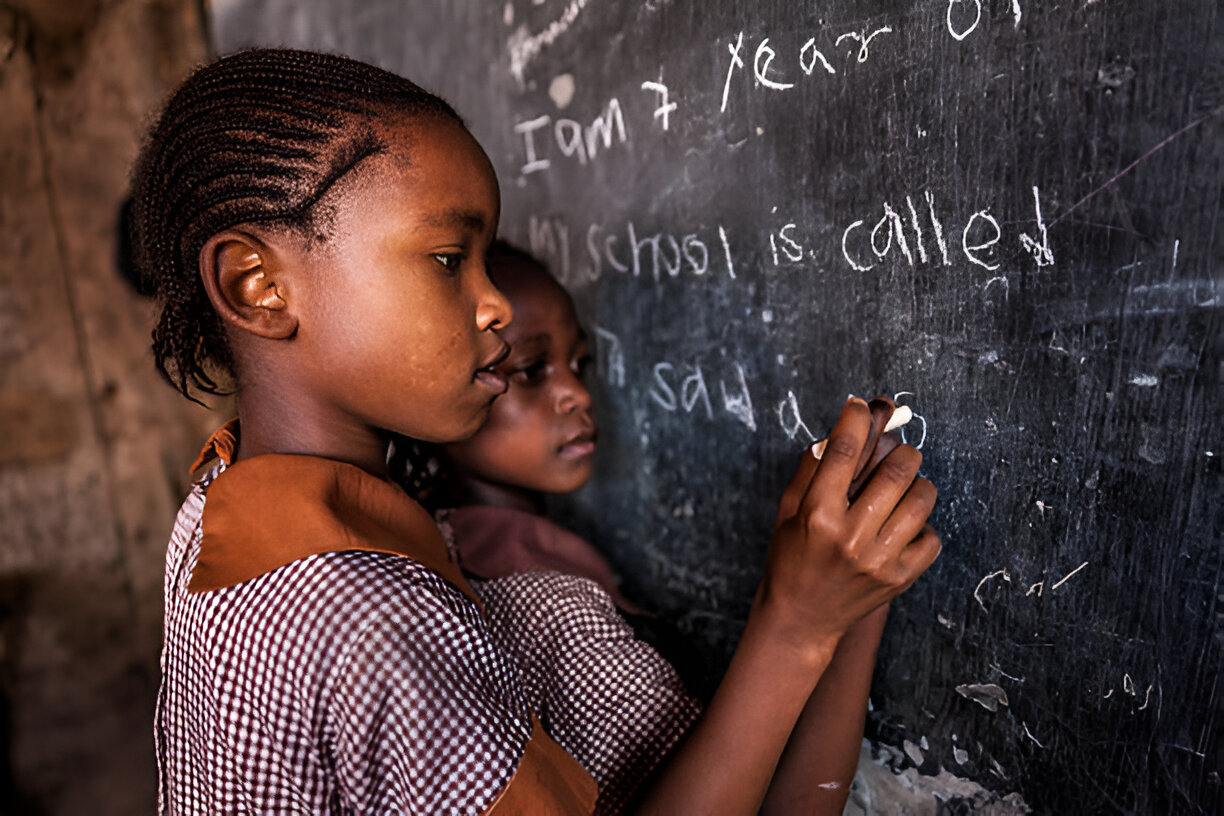 I am 7 year o
My school is called
I saw a